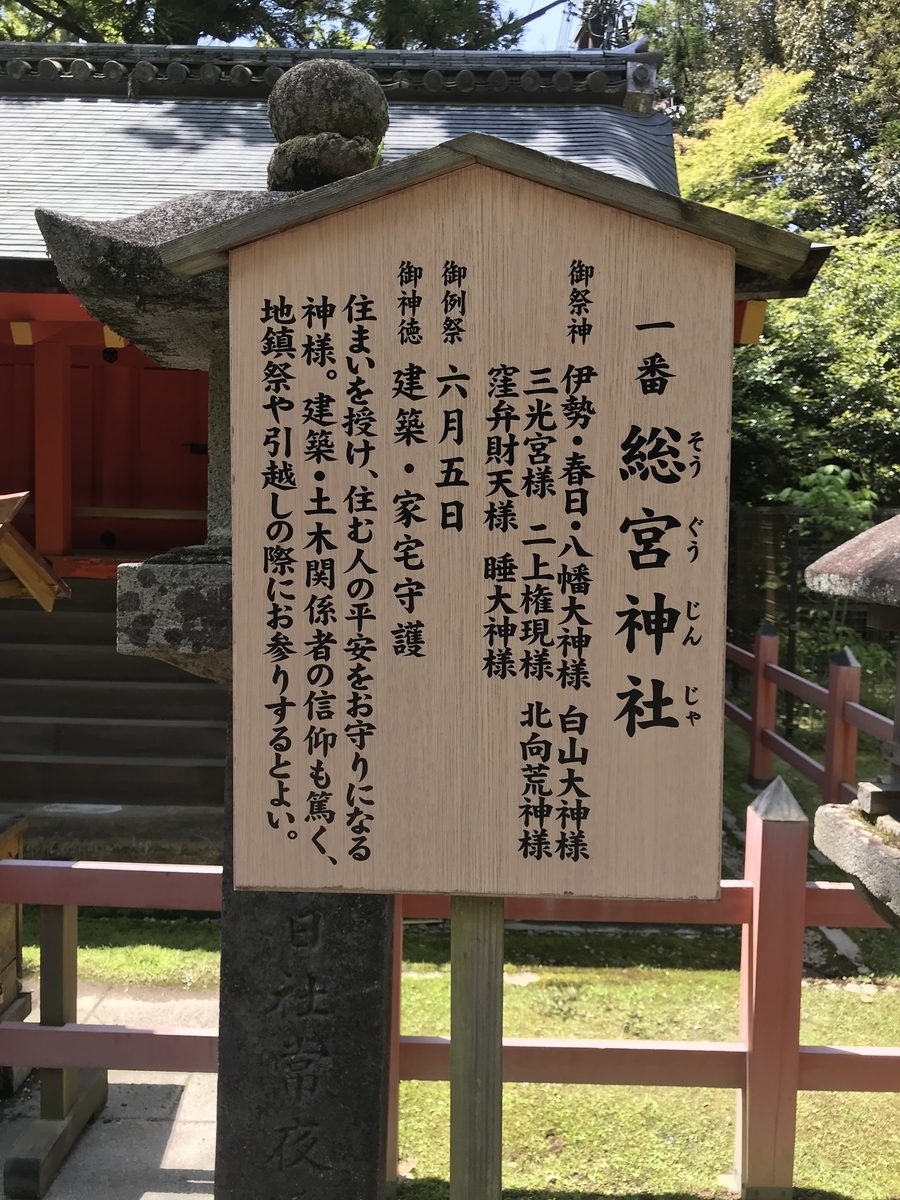 一番 総宮神社
そうぐうじんじゃ
御祭神 伊勢・春日・八幡大神様 白山大神様
三光宮様 二上権現様 北向荒神様
窪弁財天様 睡大神様
御例祭 六月五日
御神徳 建築・家宅守護
住まいを授け、住む人の平安をお守りになる
神様。建築・土木関係者の信仰も篤く、
地鎮祭や引越しの際にお参りするとよい。
日社常夜